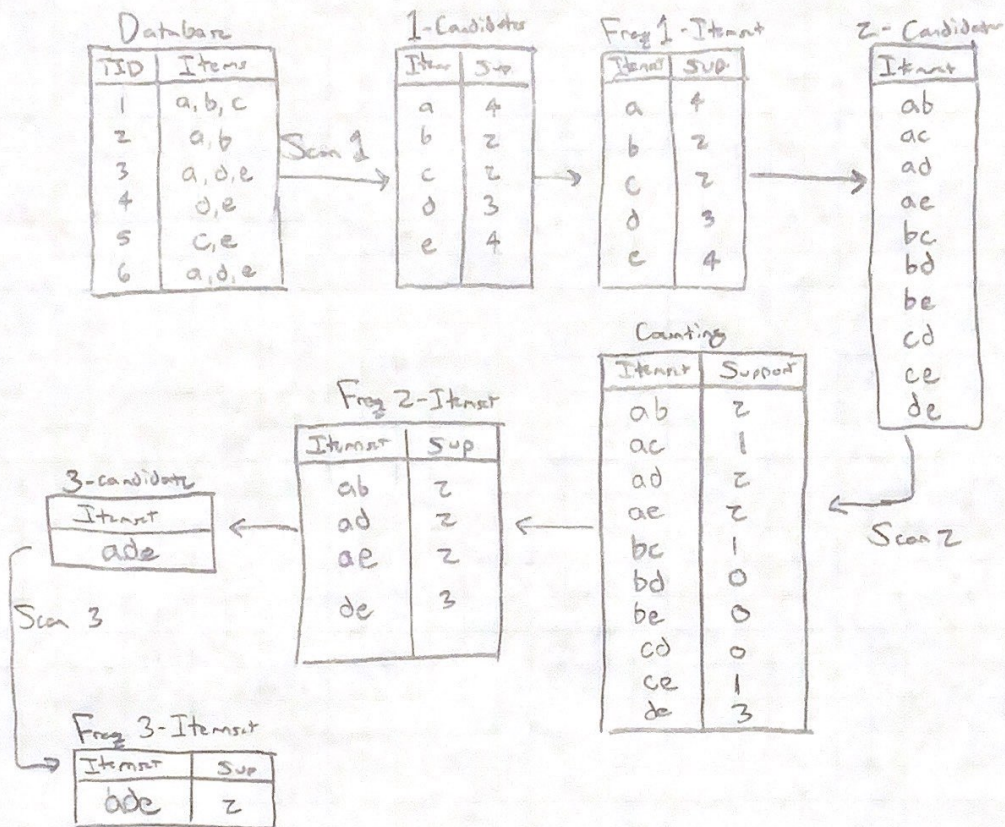 Database
TID Items
1 a, b, c
2 a, b
3 a, d, e
4 d, e
5 c, e
6 a, d, e
Scan 1
1-Candidates
Item Sup.
a 4
b 2
c 2
d 3
e 4
Freq 1-Itemset
Itemset Sup.
a 4
b 2
c 2
d 3
e 4
2-Candidates
Itemset
ab
ac
ad
ae
bc
bd
be
cd
ce
de
Scan 2
Counting
Itemset Support
ab 2
ac 1
ad 2
ae 2
bc 1
bd 0
be 0
cd 0
ce 1
de 3
Freq 2-Itemset
Itemset Sup.
ab 2
ad 2
ae 2
de 3
3-candidate
Itemset
ade
Scan 3
Freq 3-Itemset
Itemset Sup
bde 2